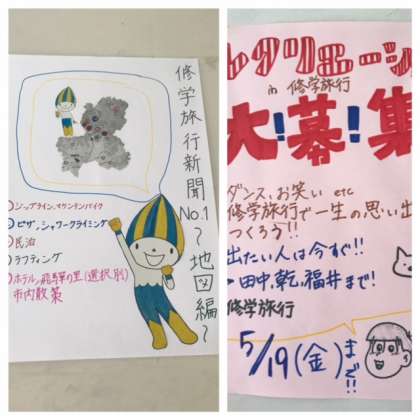 修学旅行新聞
No.1
~地図編~
①ジップライン,マウンテンバイク
②ピザ,シャワークライミング
③民泊
④ラフティング
⑤ホテル,飛騨の里(選択別)
市内散策
レクリエーシ
in 修学旅行
大!募!集
ダンス、お笑い etc
修学旅行で一生の思い出
つくろう!!
出たい人は今すぐ!!
田中,乾,福井まで!
修学旅行
5/19(金)まで!!